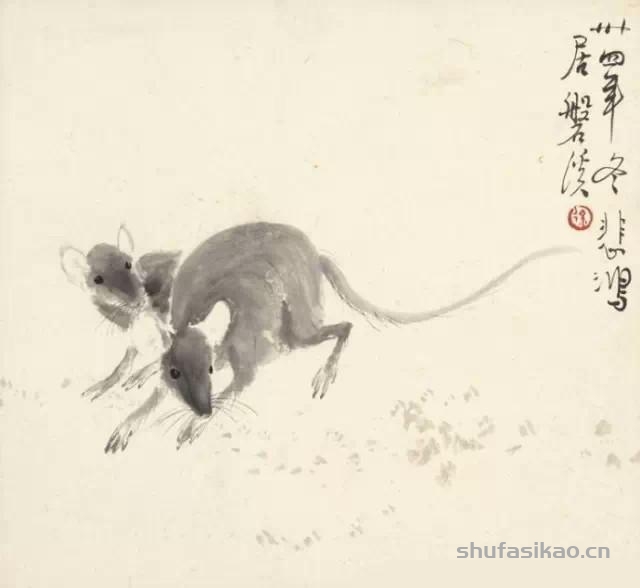 卅四年冬悲鸿
居磐溪
shufasikao.cn